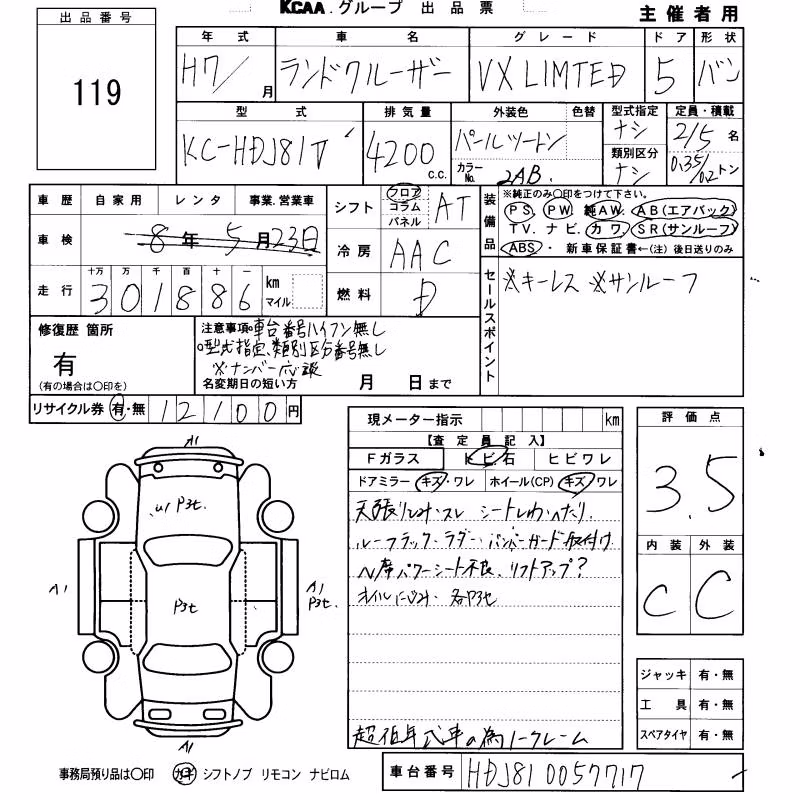 出品番号
119
KCAA.グループ 出品票
主催者用
年式 車名 グレード ドア 形状
H7/ 月 ランドクルーザー VX LIMTED 5 バン
型式 排気量 外装色 色替 型式指定 定員・積載
KC-HDJ81V 4200 c.c. パールツートン ナシ 2/5 名
カラーNo. 2AB. 類別区分 ナシ 0.35/0.2 トン
車歴 自家用 レンタ 事業.営業車
車検 8年5月23日
シフト フロア コラム パネル AT
冷房 AAC
燃料 D
装備品
※純正のみ○印をつけて下さい。
PS. PW. 純AW. AB(エアバック)
TV. ナビ. カワ. SR(サンルーフ)
ABS・新車保証書←(注)後日送りのみ
走行 十万 万 千 百 十 一
301886 km マイル
セールスポイント
※キーレス ※サンルーフ
修復歴 箇所
有
(有の場合は○印を)
注意事項 車台番号ハイフン無し
○型式指定、類別区分番号無し
※ナンバー応談
名変期日の短い方 月 日まで
リサイクル券 有・無 12100円
現メーター指示 km
【査定員記入】
Fガラス トビ石 ヒビワレ
ドアミラー キズ・ワレ ホイール(CP) キズ ワレ
天張りしみ・スレ シートしわ・へたり
ルーフラック・ラダー・バンパーガード取付け
N席パワーシート不良、リフトアップ?
オイルにじみ・各P3t
超低年式車の為ノークレーム
評価点
3.5
内装 外装
C C
ジャッキ 有・無
工具 有・無
スペアタイヤ 有・無
A1
U1 P3t.
A1
P3t
A1
P3t.
A1
事務局預り品は○印 カギ シフトノブ リモコン ナビロム
車台番号 HDJ81 0057717